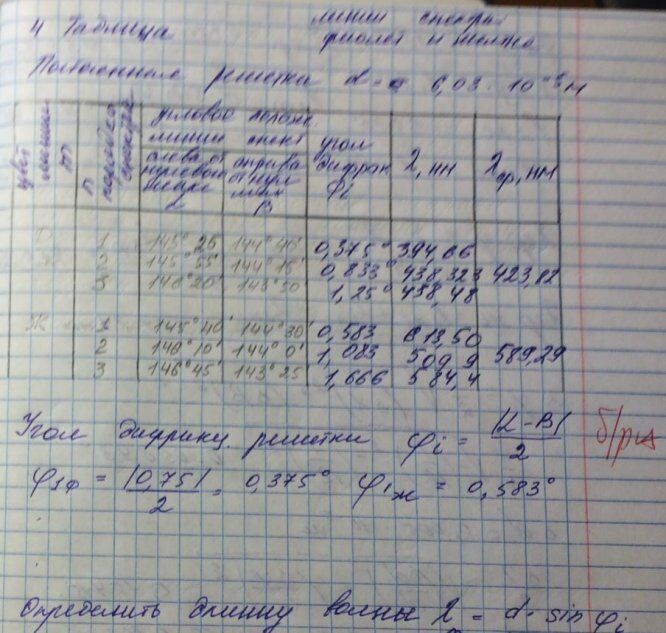 линии спектра
4 Таблица
фиолет и желто
Постоянная решетка d = 6,03 · 10⁻⁵ м
цвет линии m
n порядок спектра
угловое полож.
линии спект
слева от нулевого
справа от нул
α
β
угол дифрак φi
λ, нм
λср, нм
1 145° 25' 144° 40' 0,375° 394,66
2 145° 55' 144° 15' 0,833° 438,323 423,82
3 146° 20' 143° 50' 1,25° 438,48
Ж 1 145° 40' 144° 30' 0,583 613,50
2 146° 10' 144° 0' 1,083 569,9 589,29
3 146° 45' 143° 25' 1,666 584,4
Угол дифракц. решетки φi = |α - β| / 2
φ1ф = |0,75| / 2 = 0,375° φ1ж = 0,583°
Определить длинну волны λ = d · sin φi